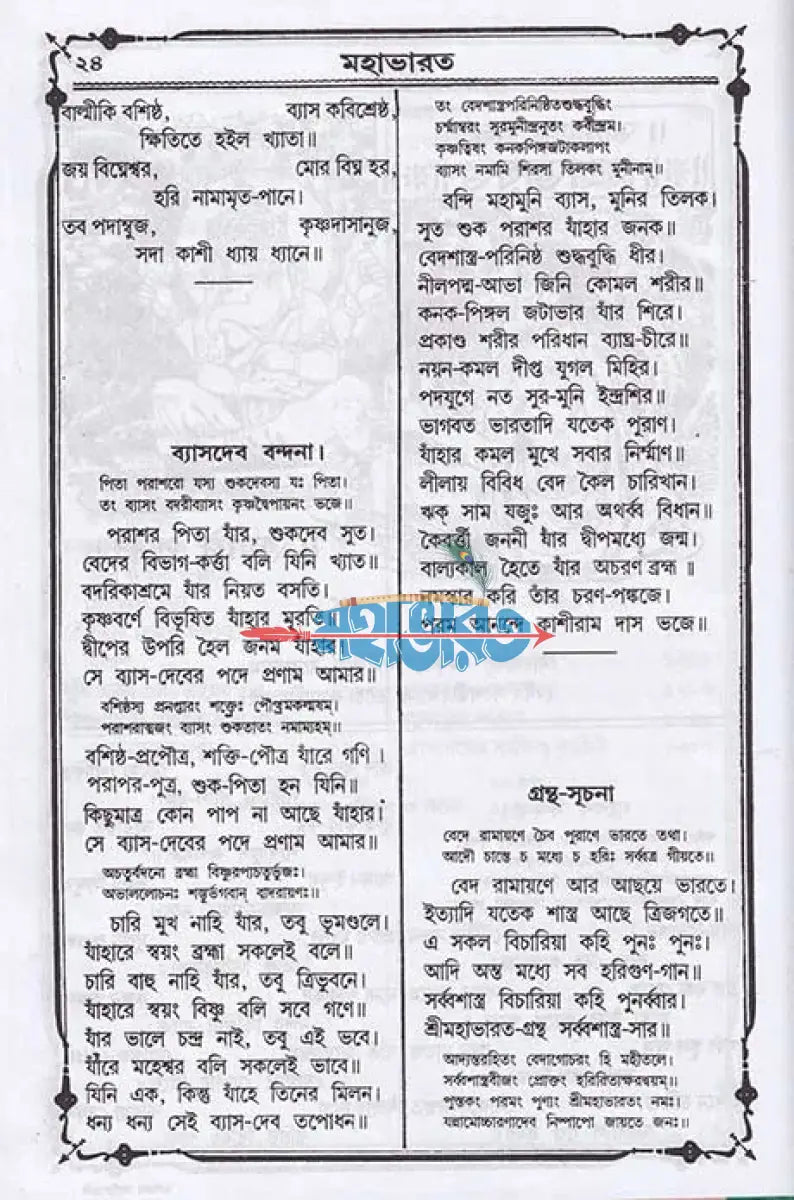 ২৪
মহাভারত
বাল্মীকি বশিষ্ঠ, ব্যাস কবিশ্রেষ্ঠ,
ক্ষিতিতে হইল খ্যাতা॥
জয় বিঘ্নেশ্বর, মোর বিঘ্ন হর,
হরি নামামৃত-পানে।
তব পদাম্বুজ, কৃষ্ণদাসানুজ,
সদা কাশী ধ্যায় ধ্যানে॥
ব্যাসদেব বন্দনা।
পিতা পরাশরো যস্য শুকদেবস্য যঃ পিতা।
তং ব্যাসং বদরীব্যাসং কৃষ্ণদ্বৈপায়নং ভজে॥
পরাশর পিতা যাঁর, শুকদেব সুত।
বেদের বিভাগ-কর্ত্তা বলি যিনি খ্যাত॥
বদরিকাশ্রমে যাঁর নিয়ত বসতি।
কৃষ্ণবর্ণে বিভূষিত যাঁহার মূরতি॥
দ্বীপের উপরি হৈল জনম যাঁহার।
সে ব্যাস-দেবের পদে প্রণাম আমার॥
বশিষ্ঠস্য প্রনপ্তারং শক্তেঃ পৌত্রমকল্মষম্।
পরাশরাত্মজং ব্যাসং শুকতাতং নমাম্যহম্॥
বশিষ্ঠ-প্রপৌত্র, শক্তি-পৌত্র যাঁরে গণি ।
পরাপর-পূত্র, শুক-পিতা হন যিনি॥
কিছুমাত্র কোন পাপ না আছে যাঁহার।
সে ব্যাস-দেবের পদে প্রণাম আমার॥
অচতুর্বদনো ব্রহ্মা বিষ্ণুরপাচতুর্ভূজঃ।
অভাললোচনঃ শম্ভুর্ভগবান্ বাদরায়ণঃ॥
চারি মুখ নাহি যাঁর, তবু ভূমণ্ডলে।
যাঁহারে স্বয়ং ব্রহ্মা সকলেই বলে॥
চারি বাহু নাহি যাঁর, তবু ত্রিভুবনে।
যাঁহারে স্বয়ং বিষ্ণু বলি সবে গণে॥
যাঁর ভালে চন্দ্র নাই, তবু এই ভবে।
যাঁরে মহেশ্বর বলি সকলেই ভাবে॥
যিনি এক, কিন্তু যাঁহে তিনের মিলন।
ধন্য ধন্য সেই ব্যাস-দেব তপোধন॥
তং বেদশাস্ত্রপরিনিষ্ঠিতশুদ্ধবুদ্ধিং
চর্ম্মাম্বরং সুরমুনীন্দ্রনুতং কবীন্দ্রম্।
কৃষ্ণত্বিষং কনকপিঙ্গজটাকলাপং
ব্যাসং নমামি শিরসা তিলকং মুনীনাম্॥
বন্দি মহামুনি ব্যাস, মুনির তিলক।
সুত শুক পরাশর যাঁহার জনক॥
বেদশাস্ত্র-পরিনিষ্ঠ শুদ্ধবুদ্ধি ধীর।
নীলপদ্ম-আভা জিনি কোমল শরীর॥
কনক-পিঙ্গল জটাভার যাঁর শিরে।
প্রকাণ্ড শরীর পরিধান ব্যাঘ্র-চীরে॥
নয়ন-কমল দীপ্ত যুগল মিহির।
পদযুগে নত সুর-মুনি ইন্দ্রশির॥
ভাগবত ভারতাদি যতেক পুরাণ।
যাঁহার কমল মুখে সবার নির্ম্মাণ॥
লীলায় বিবিধ বেদ কৈল চারিখান।
ঋক্ সাম যজুঃ আর অথর্ব্ব বিধান॥
কৈবর্ত্তী জননী যাঁর দ্বীপমধ্যে জন্ম।
বাল্যকাল হৈতে যাঁর অচরণ ব্রহ্ম ॥
নমস্কার করি তাঁর চরণ-পঙ্কজে।
পরম আনন্দে কাশীরাম দাস ভজে॥
মহাভারত
গ্রন্থ-সূচনা
বেদে রামায়ণে চৈব পুরাণে ভারতে তথা।
আদৌ চান্তে চ মধ্যে চ হরিঃ সর্ব্বত্র গীয়তে॥
বেদ রামায়ণে আর আছয়ে ভারতে।
ইত্যাদি যতেক শাস্ত্র আছে ত্রিজগতে॥
এ সকল বিচারিয়া কহি পুনঃ পুনঃ।
আদি অন্ত মধ্যে সব হরিগুণ-গান॥
সর্ব্বশাস্ত্র বিচারিয়া কহি পুনর্ব্বার।
শ্রীমহাভারত-গ্রন্থ সর্ব্বশাস্ত্র-সার॥
আদ্যন্তরহিতং বেদাগোচরং হি মহীতলে।
সর্ব্বশাস্ত্রবীজং প্রোক্তং হরিরিত্যক্ষরদ্বয়ম্॥
পুস্তকং পরমং পূণ্যং শ্রীমহাভারতং নমঃ।
যন্নামোচ্চারণাদেব নিষ্পাপো জায়তে জনঃ॥